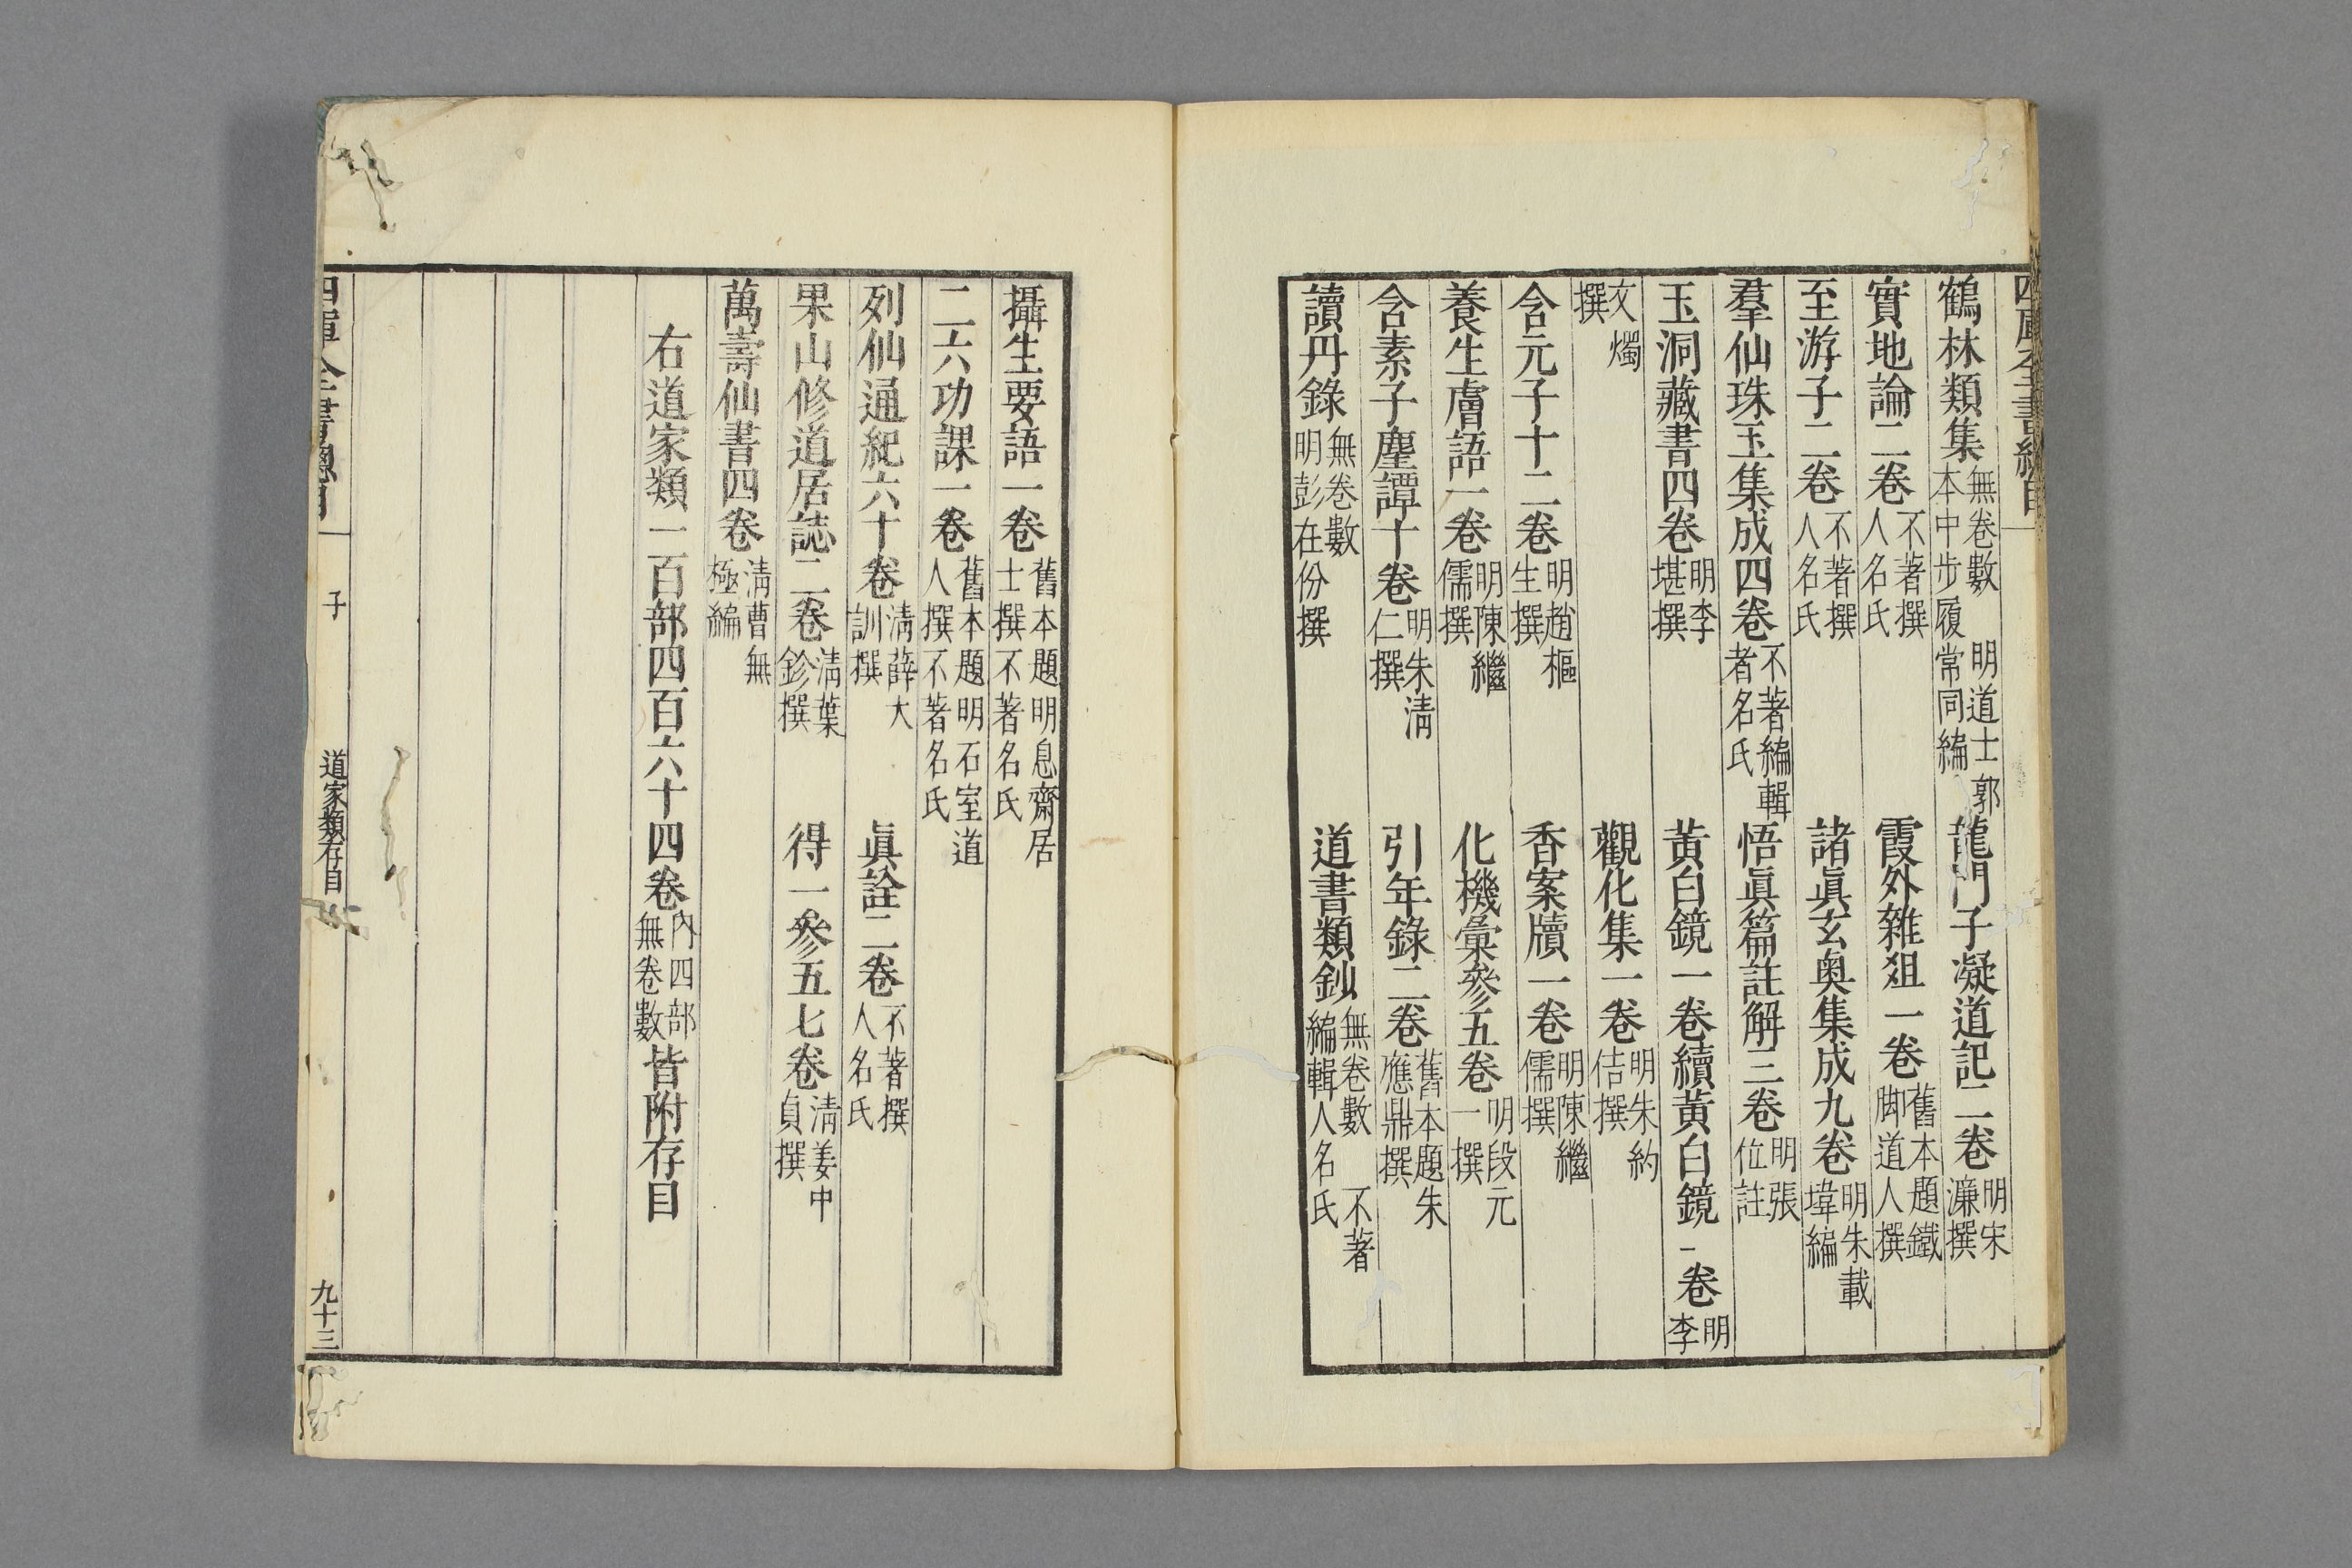 四庫全書總目
鶴林類集無卷數 明道士郭本中步履常同編 龍門子凝道記二卷明宋濂撰
實地論二卷不著撰人名氏 霞外雜俎一卷舊本題鐵脚道人撰
至游子二卷不著撰人名氏 諸眞玄奥集成九卷明朱載㙔編
羣仙珠玉集成四卷不著編輯者名氏 悟眞篇註解三卷明張位註
玉洞藏書四卷明李堪撰 黃白鏡一卷續黃白鏡一卷明李
文燭撰 觀化集一卷明朱約佶撰
含元子十二卷明趙樞生撰 香案牘一卷明陳繼儒撰
養生膚語一卷明陳繼儒撰 化機彙參五卷明段元一撰
含素子塵譚十卷明朱淸仁撰 引年錄二卷舊本題朱應鼎撰
讀丹錄無卷數明彭在份撰 道書類鈔無卷數 不著編輯人名氏
攝生要語一卷舊本題明息齋居士撰不著名氏
二六功課一卷舊本題明石室道人撰不著名氏
列仙通紀六十卷淸薛大訓撰 眞詮二卷不著撰人名氏
果山修道居誌二卷淸葉鉁撰 得一參五七卷淸姜中貞撰
萬壽仙書四卷淸曹無極編
右道家類一百部四百六十四卷內四部無卷數皆附存目
四庫全書總目 子 道家類存目 九十三